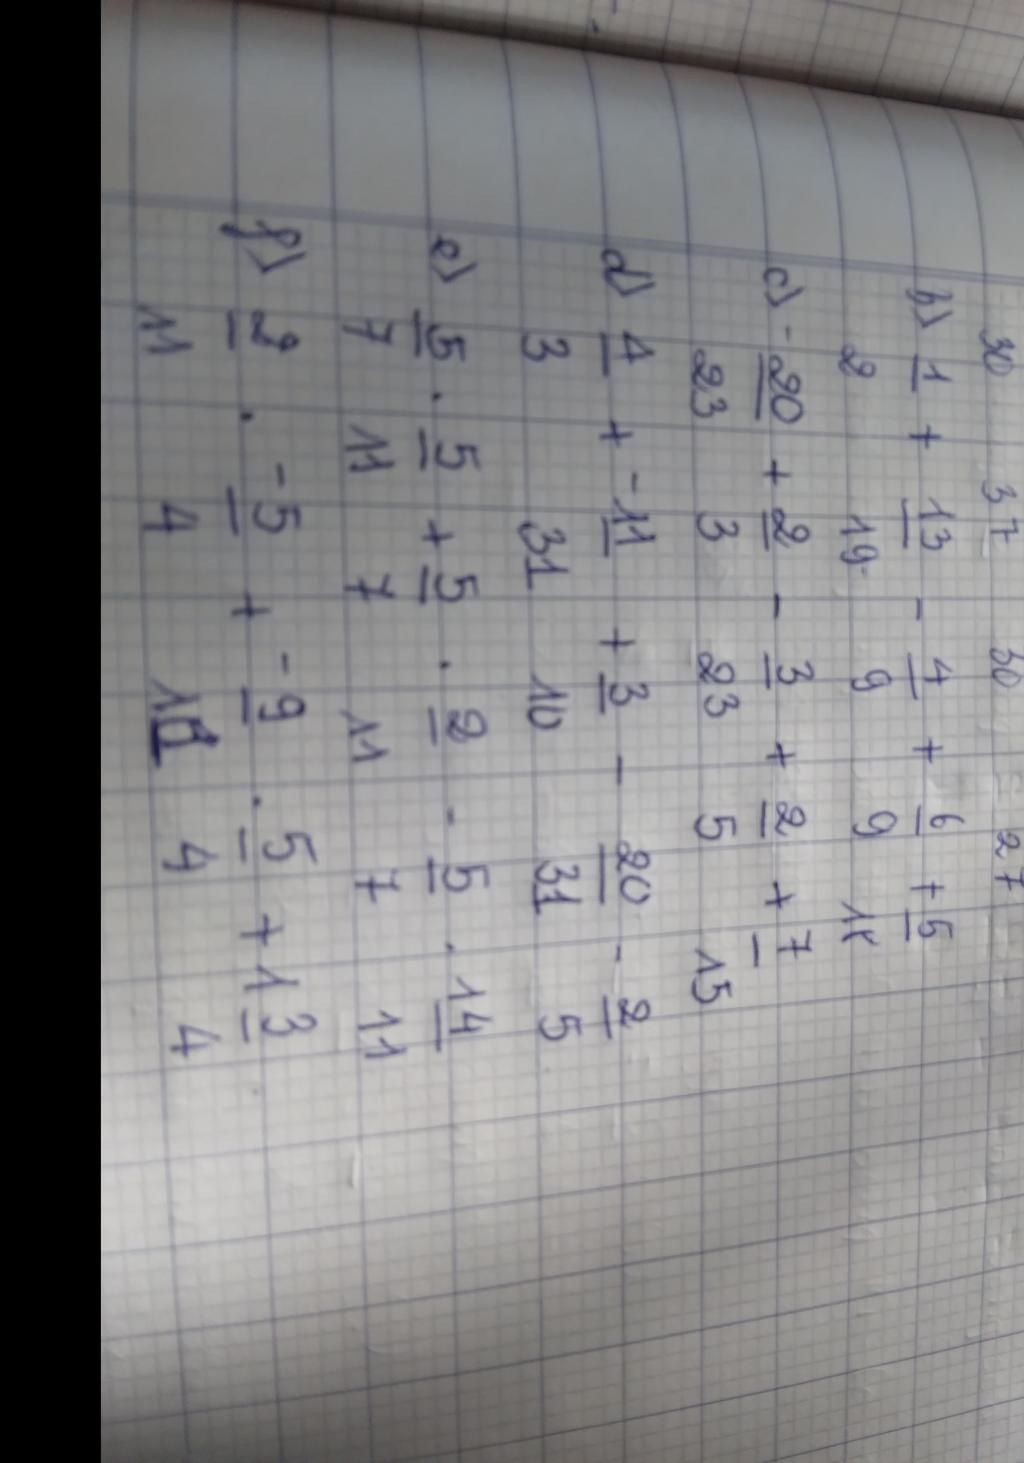 30 37 30 27
b) 1/2 + 13/19 - 4/9 + 6/9 + 5/18
c) -20/23 + 2/3 - 3/23 + 2/5 + 7/15
d) 4/3 + -11/31 + 3/10 - 20/31 - 2/5
e) 5/7 . 5/11 + 5/7 . 2/11 - 5/7 . 14/11
f) 2/11 . -5/4 + -9/11 . 5/4 + 1 3/4